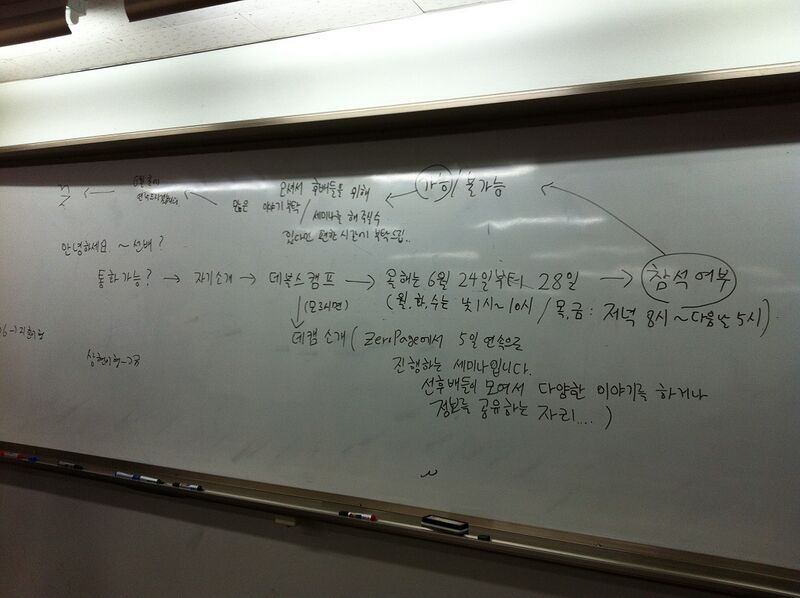 끝
6월 초에
오셔서 후배들을 위해
많은 이야기 부탁 / 세미나를 해주실 수
있다면 편한 시간에 부탁드림..
가능 / 불가능
안녕하세요. ~ 선배?
통화 가능? → 자기소개 → 데블스캠프 → 올해는 6월 24일부터 28일 → 참석여부
(모르시면)
(월, 화, 수는 낮 1시 ~ 10시 / 목, 금 : 저녁 8시 ~ 다음날 5시)
데캠 소개 ( ZeroPage에서 5일 연속으로
진행하는 세미나입니다.
선후배들이 모여서 다양한 이야기를 하거나
정보를 공유하는 자리.... )